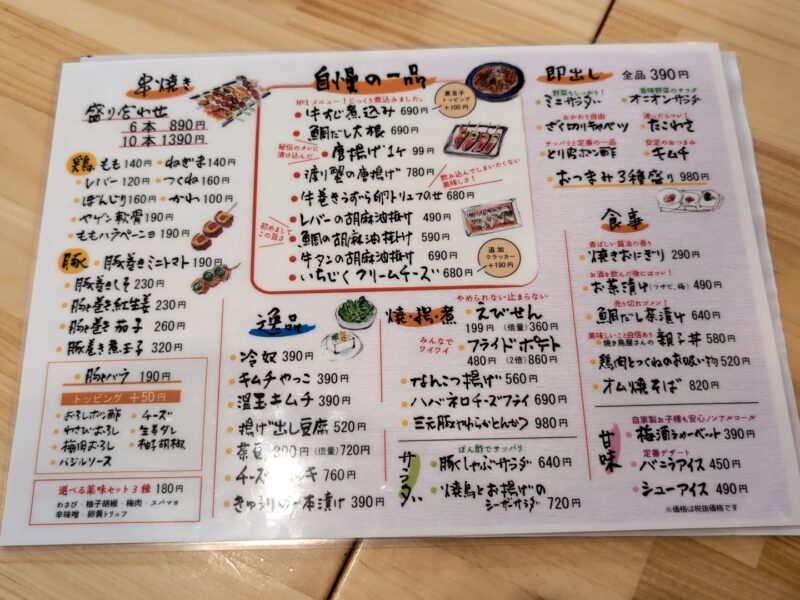 串焼き
盛り合わせ
6本 890円
10本 1390円
鶏
もも140円 ・ねぎま140円
・レバー120円 ・つくね160円
・ぼんじり160円 ・かわ100円
・ヤゲン軟骨190円
・ももハラペーニョ190円
豚
・豚巻きミニトマト190円
・豚巻きしそ230円
・豚巻き紅生姜230円
・豚巻き茄子260円
・豚巻き煮玉子320円
・豚バラ 190円
トッピング +50円
・おろしポン酢 ・チーズ
・わさびおろし ・生姜ダレ
・梅肉おろし ・柚子胡椒
・バジルソース
選べる薬味セット3種 180円
わさび・柚子胡椒・梅肉・スパマヨ
辛味噌・卵黄トリュフ
自慢の一品
No1メニュー!じっくり煮込みました。
・牛すじ煮込み690円
煮玉子
トッピング
+100円
・鯛だし大根 690円
秘伝のタレに
漬け込んだ
・唐揚げ1ケ 99円
・渡り蟹の唐揚げ 780円
飲み込んでしまいたくない
美味しさ!
・牛巻きうずら卵トリュフのせ 680円
・レバーの胡麻油掛け 490円
初めまして
この旨さ
・鯛の胡麻油掛け 590円
・牛タンの胡麻油掛け 690円
・いちじくクリームチーズ680円
追加
クラッカー
+190円
逸品
・冷奴 390円
・キムチやっこ 390円
・温玉キムチ 390円
・揚げ出し豆腐 520円
(倍量)720円
760円
・きゅうりの一本漬け 390円
焼・揚・煮
やめられない止まらない
・えびせん
199円 (倍量)360円
みんなで
ワイワイ
・フライドポテト
480円 (2倍)860円
・なんこつ揚げ 560円
・ハバネロチーズフライ 690円
・三元豚やわらかとんかつ 980円
サラダ
ぽん酢でサッパリ
・豚しゃぶサラダ 640円
・焼鳥とお揚げの
シーザーサラダ 720円
即出し 全品390円
野菜もしっかり!
・ミニサラダ
香味野菜のサラダ
・オニオンサラダ
おかわり自由
・ざく切りキャベツ
迷ったらコレ!
・たこわさ
サッパリと定番の一品
・とり皮ポン酢
安定のおつまみ
・キムチ
・おつまみ3種盛り 980円
食事
香ばしい醤油の香り
・焼きおにぎり 290円
お酒を飲んだ後にはコレ!
・お茶漬け(ワサビ、梅) 490円
売り切れゴメン!
・鯛だし茶漬け 640円
美味しいこと自信あり
・焼き鳥屋さんの親子丼 580円
・鶏肉とつくねのお吸い物520円
・オム焼そば 820円
甘味
自家製お子様も安心ノンアルコール
・梅酒シャーベット390円
定番デザート
・バニラアイス 450円
・シューアイス 490円
※価格は税抜価格です。